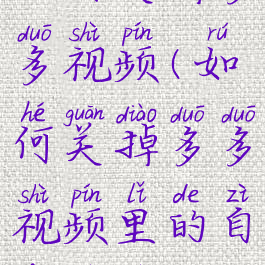 duō shì pín rú
多视频(如
hé guān diào duō duō
何关掉多多
shì pín lǐ de zì
视频里的自